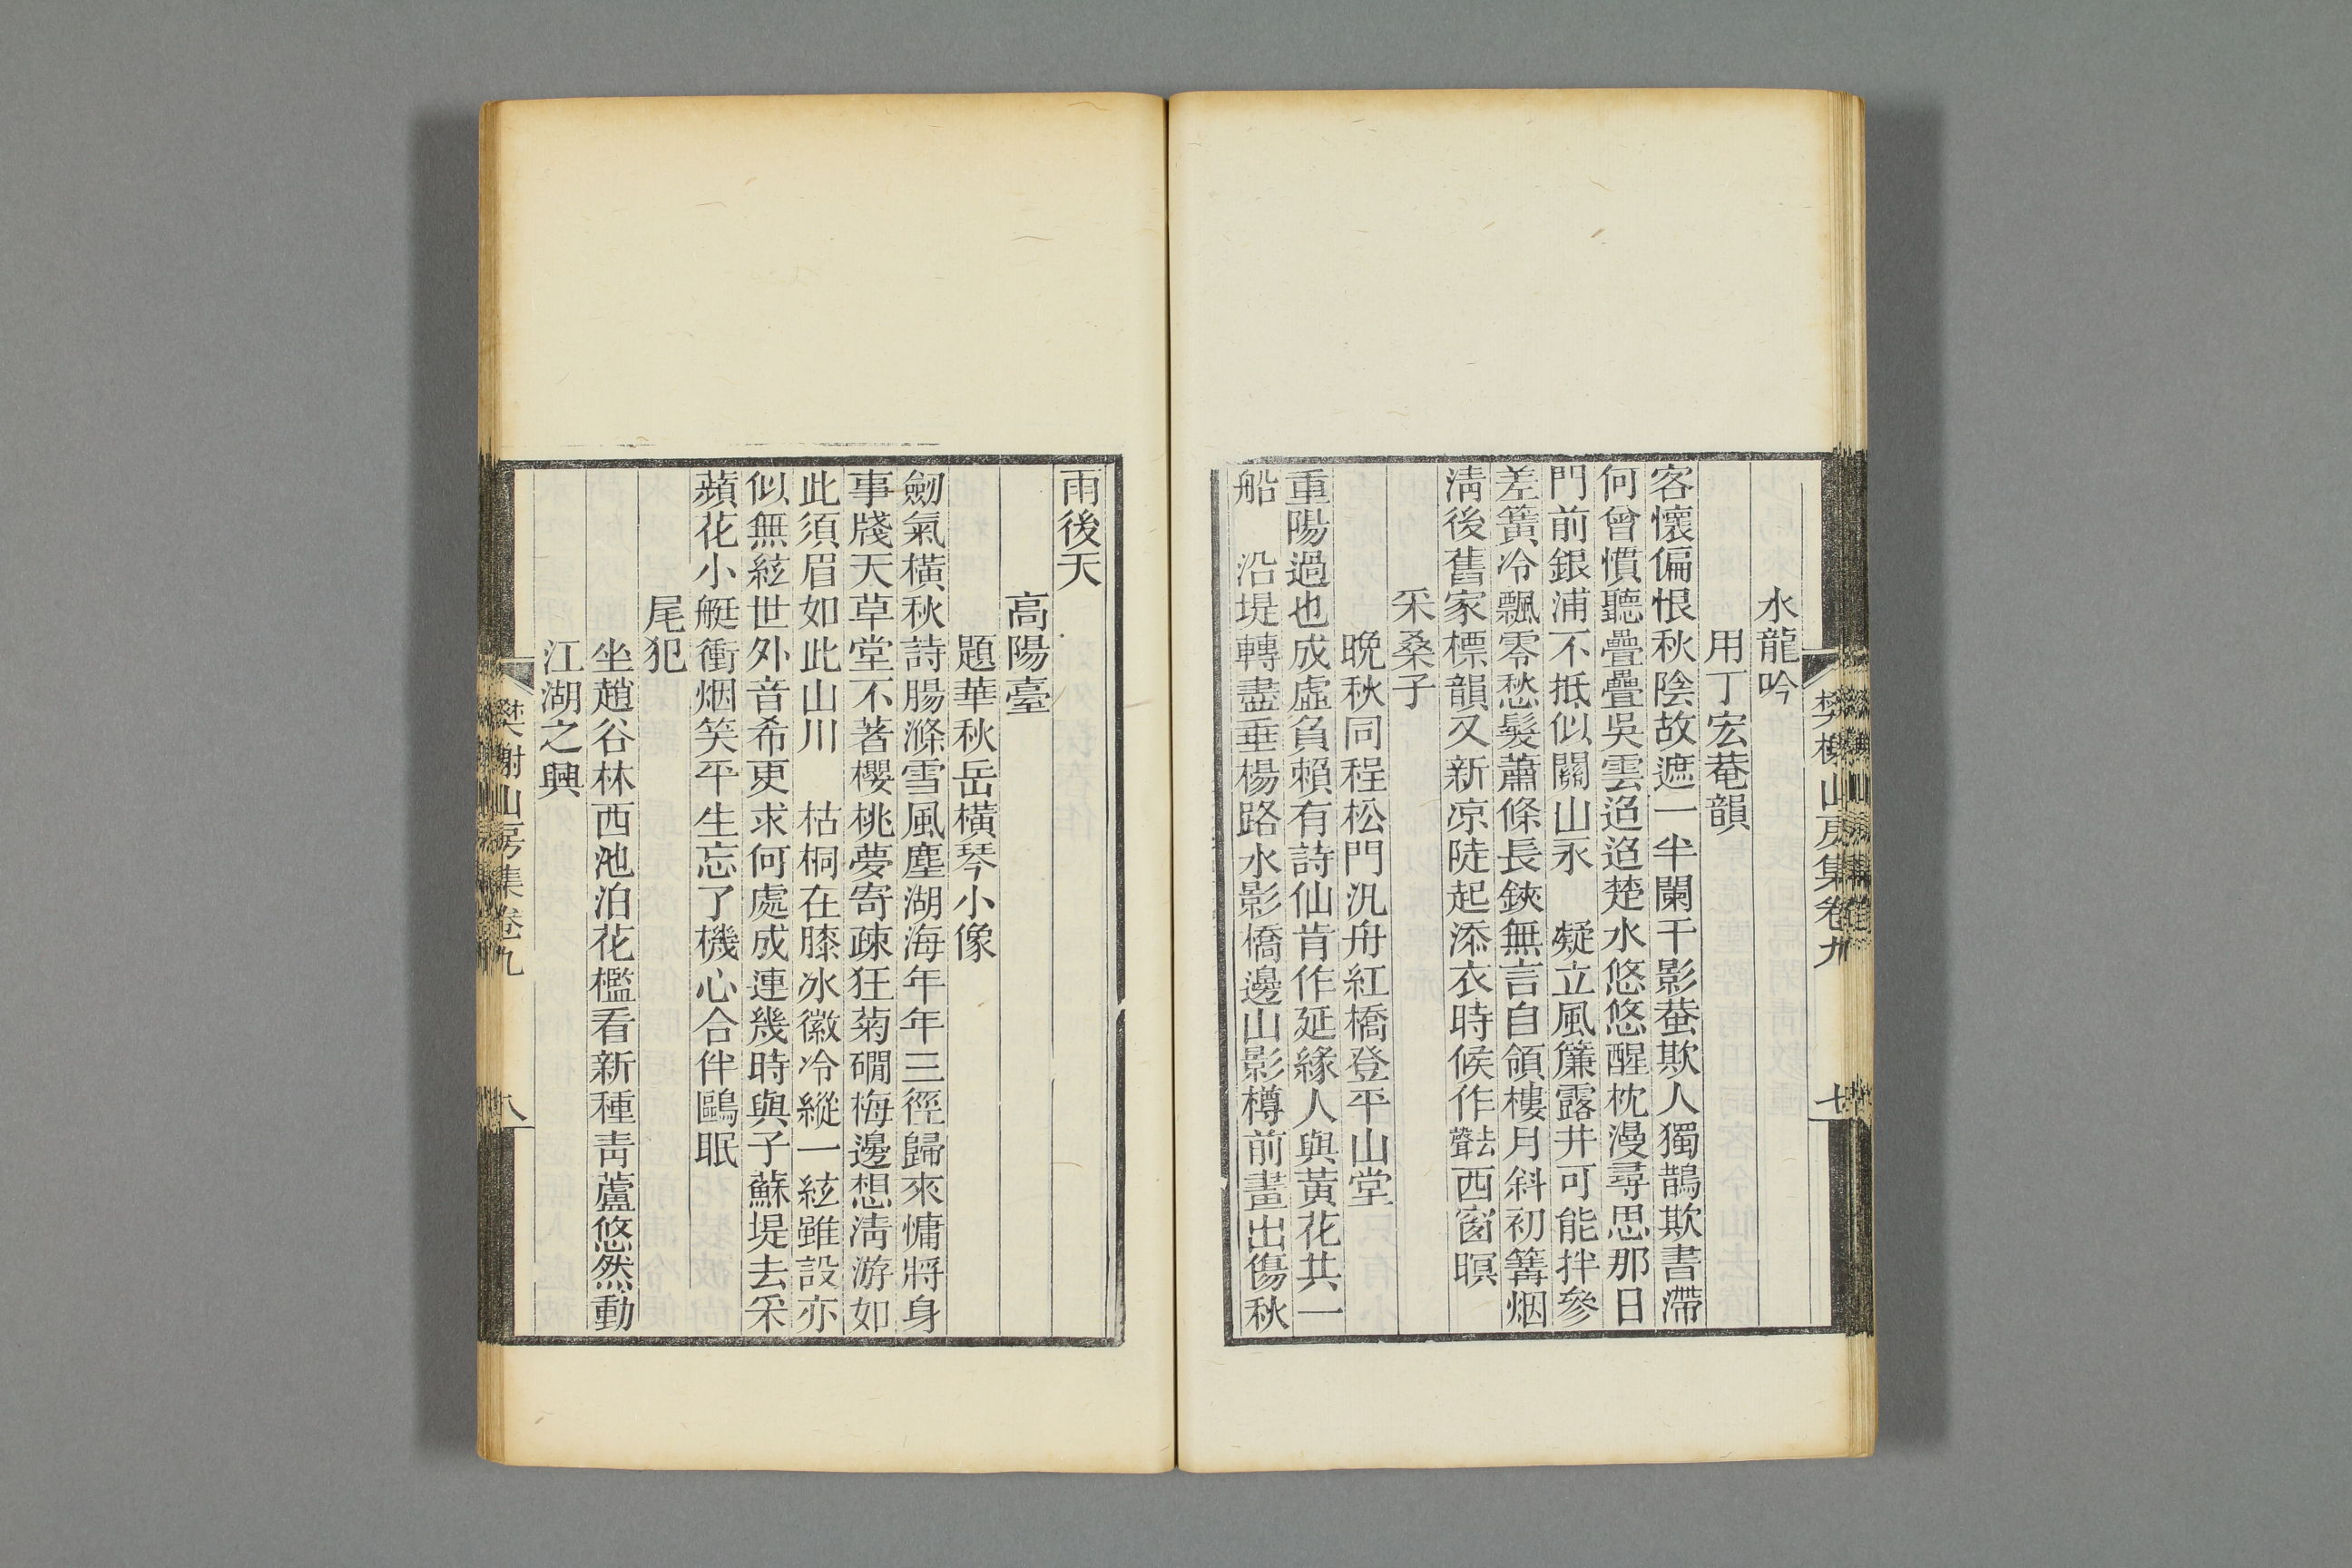 水龍吟
用丁宏菴韻
客懷偏恨秋陰故遮一半闌干影蛩欺人獨鵲欺書滯
何曾慣聽疊疊吳雲迢迢楚水悠悠醒枕漫尋思那日
門前銀浦不抵似關山永　凝立風簾露井可能拌參
差簧冷飄零愁髮蕭條長鋏無言自領樓月斜初篝烟
淸後舊家標韻又新凉陡起添衣時候作去聲西窗暝
采桑子
晚秋同程松門汎舟紅橋登平山堂
重陽過也成虛負賴有詩仙肯作延緣人與黃花共一
船　沿堤轉盡垂楊路水影橋邊山影樽前畫出傷秋
樊榭山房集卷九
七
雨後天
高陽臺
題華秋岳橫琴小像
劒氣橫秋詩腸滌雪風塵湖海年年三徑歸來慵將身
事牋天草堂不著櫻桃夢寄疎狂菊磵梅邊想淸游如
此須眉如此山川　枯桐在膝冰徽冷縱一絃雖設亦
似無絃世外音希更求何處成連幾時與子蘇堤去采
蘋花小艇衝烟笑平生忘了機心合伴鷗眠
尾犯
坐趙谷林西池泊花檻看新種靑蘆悠然動
江湖之興
樊榭山房集卷九
八